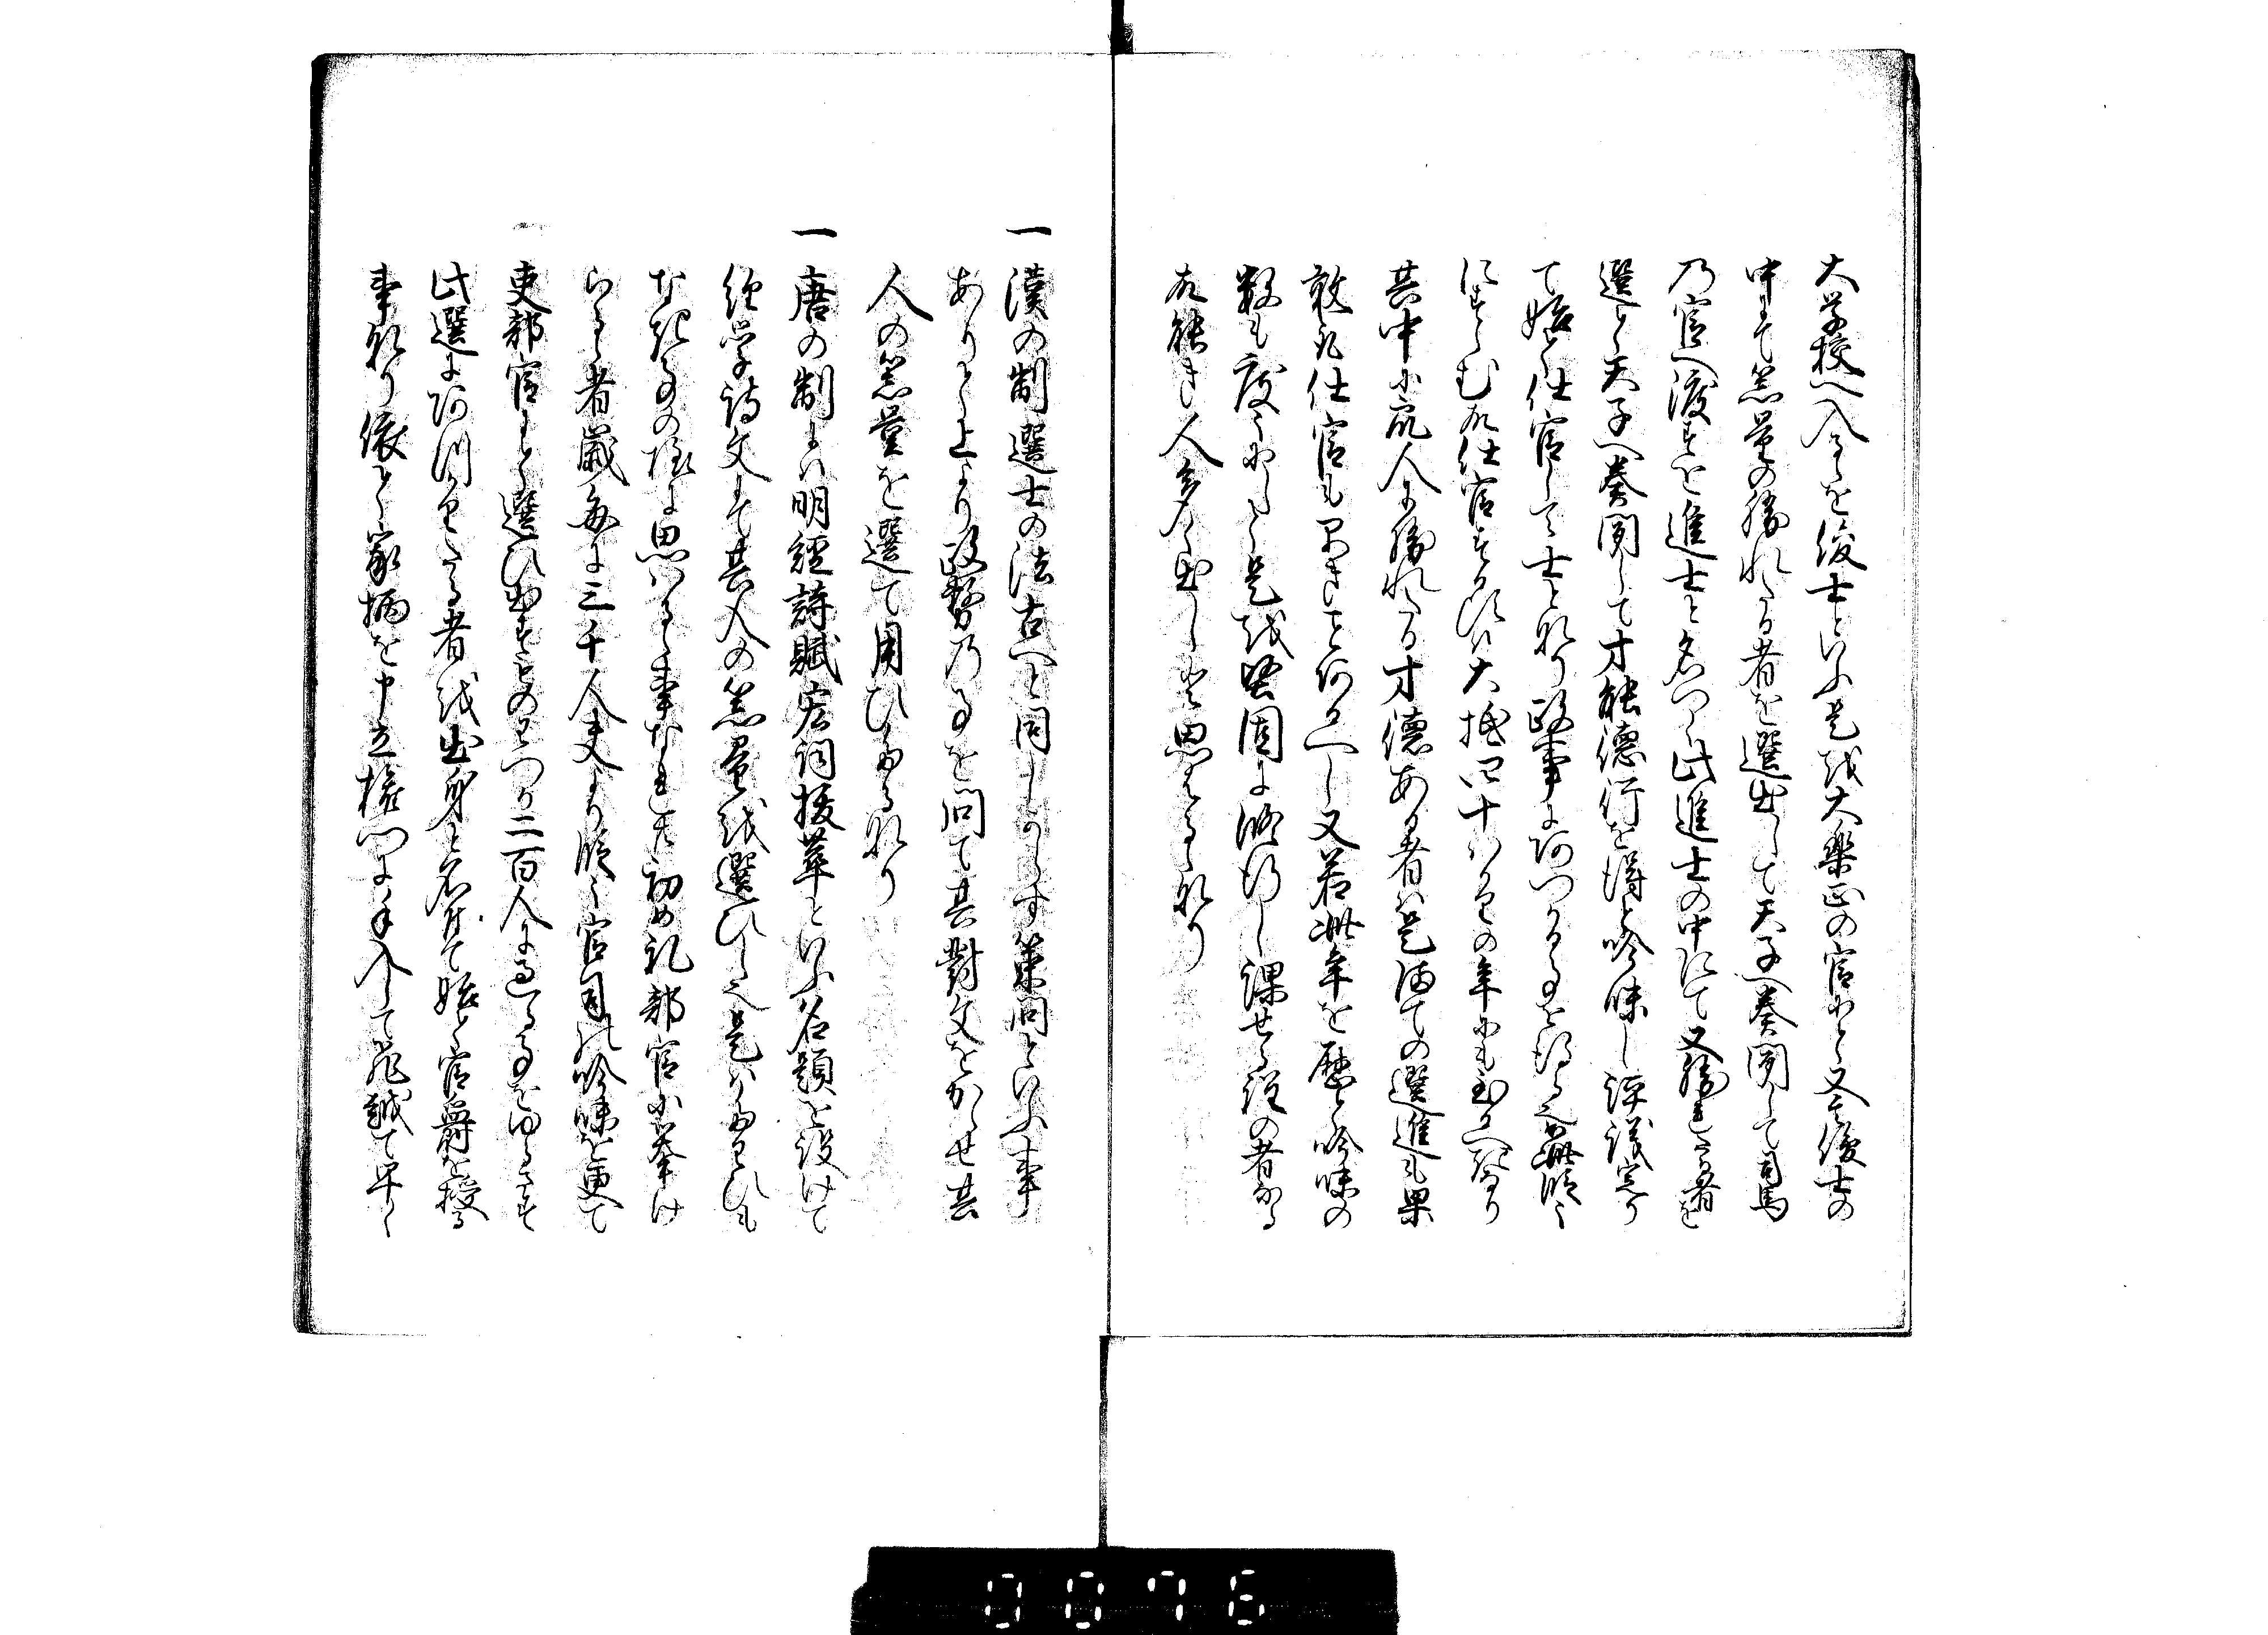 大学校へ入るゝを俊士といふ是越大楽正の官にて又其俊士の
中にて器量の勝れたる者を選出して天子へ奏聞して司馬
乃官へ渡すを進士と名つく此進士の中にて又勝れたる者を
選て天子へ奏聞して才能徳行を得と吟味し評議定り
て始て仕官して士と成り政事にあつかる事を得る也
仕官 大抵四十はかりの年に
其中に衆人に勝れたる才徳ある者は是迄の選進も果
敢 仕官も早きことあるへし又若此年を歴て吟味の
数も度々にて是越堅固に修行し課せる程の者なる
故能き人多く出しと思はるゝ也
一 漢の制選士の法古へと同しからす策問といふ事
ありて上より政務乃事を問て其對文をかゝせ其
人の器量を選て用ひたる也
一 唐の制には明經詩賦宏詞抜萃といふ名題を設けて
經学詩文にて其人の器量越選ひし也是はたわひも
なき事の様に思はるゝ事なれ共初め礼部官に挙け
らるゝ者歳毎に三千人夫より段々官司の吟味を更て
一 吏部官にて選ひ出すものわつか二百人に過る事をゆるさす
此選にあつかりたる者越出身と名付て始て官爵を授る
事也依て家柄を申立権門に手入して飛越て早く